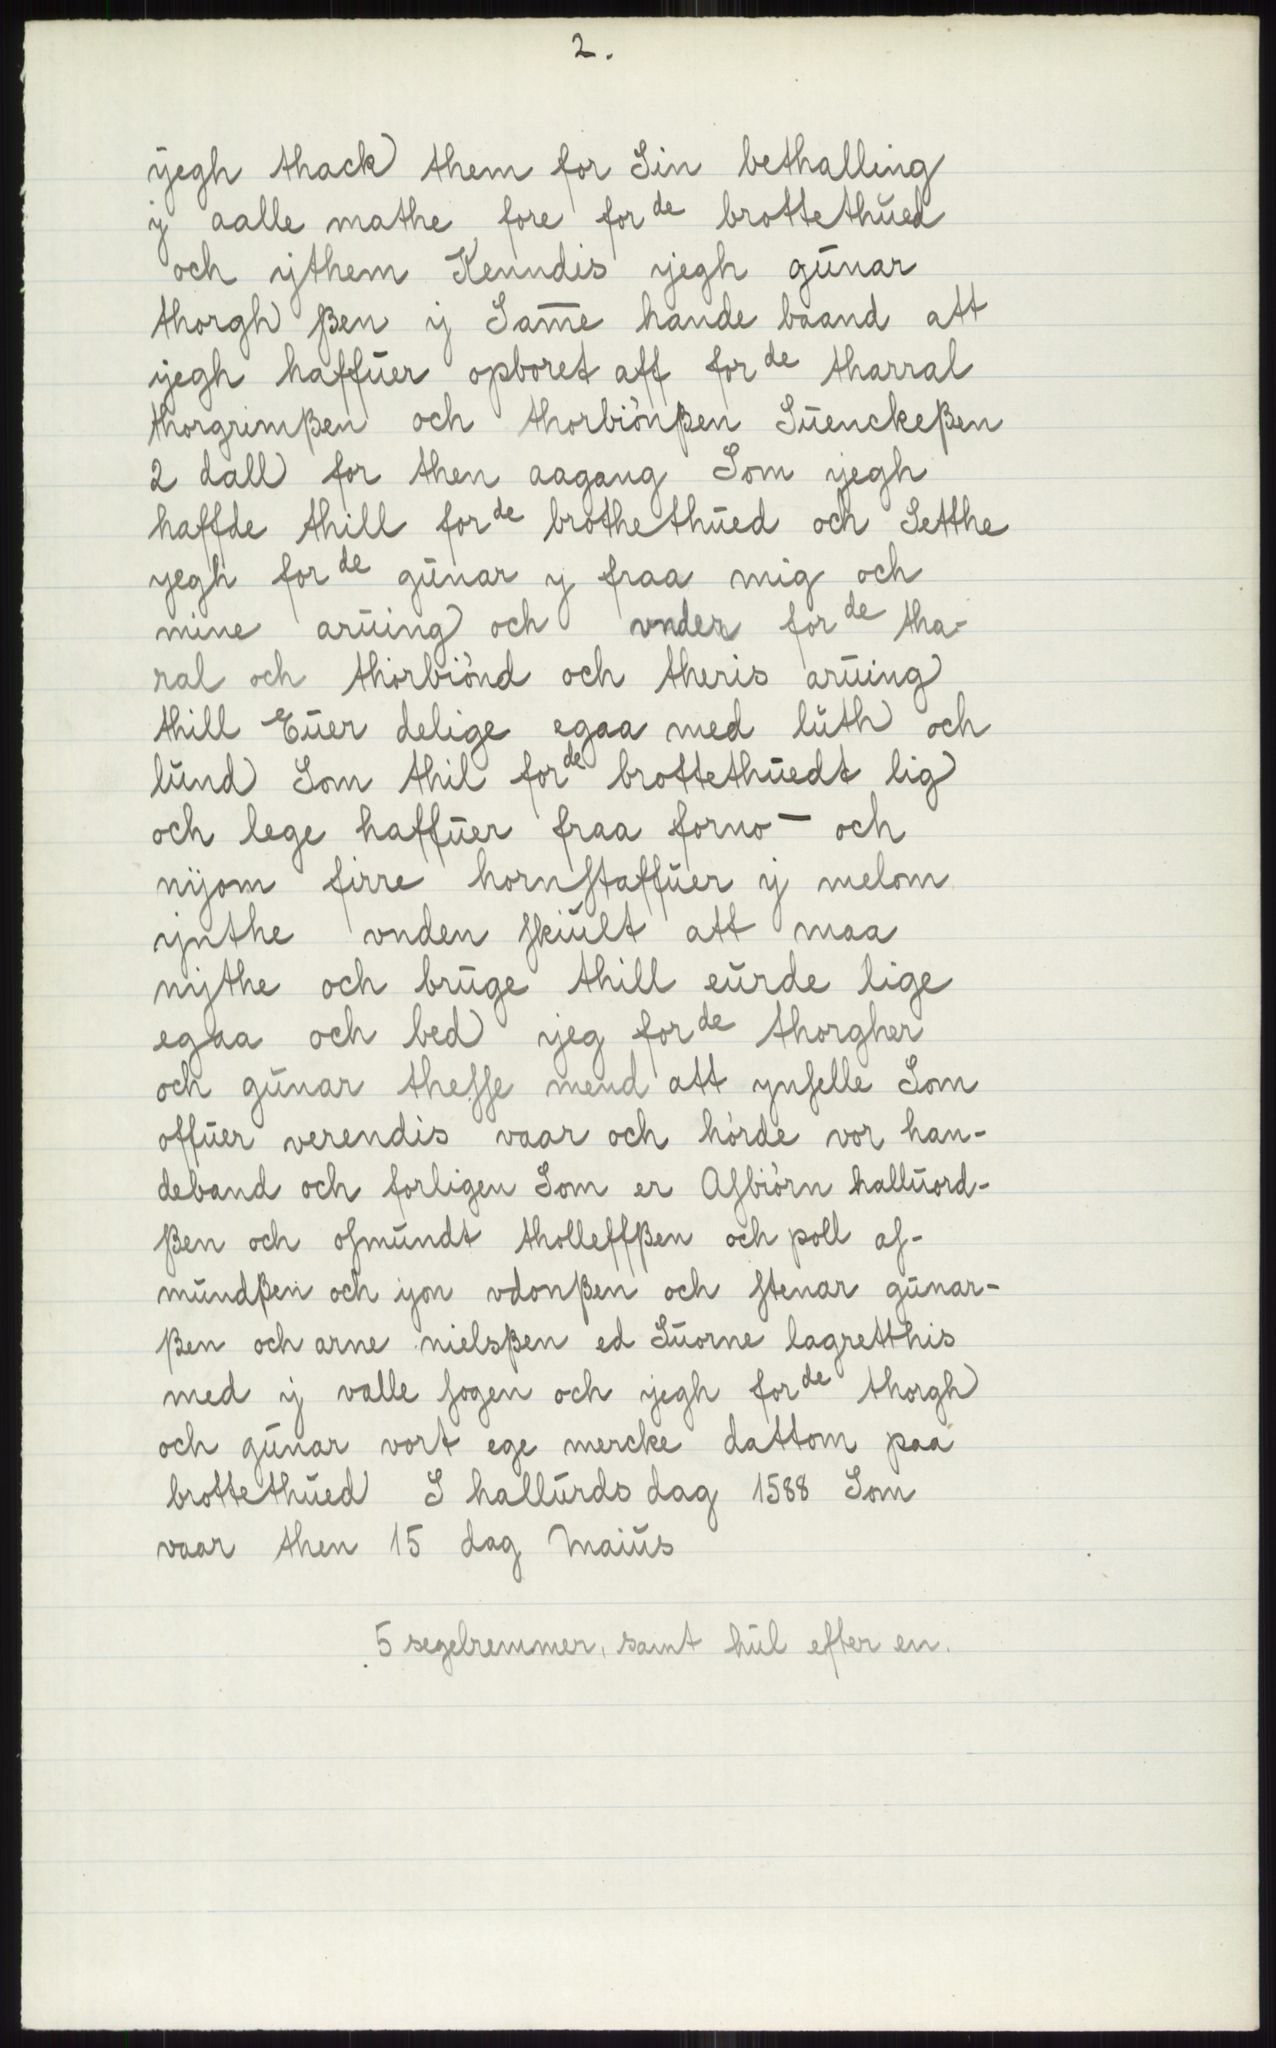 2.
ÿegh thack them for Sin bethalling
ÿ aalle mathe fore forde brottethŭed
och ythem Kenndis yegh gŭnar
thorgh ßen ÿ Sam̄e hande baand att
yegh haffŭer opboret aff forde tharral
thorgrimßen och thorbiônßen Sŭenckeßen
2 dall for then aagang Som yegh
haffde thill forde brothethŭed och Setthe
yegh forde gŭnar y fraa mig och
mine arŭing och vnder forde tha-
ral och thorbiônd och theris arŭing
thill Eŭer delige egaa med lŭth och
lŭnd Som thil forde brottethŭedt lig
och lege haffŭer fraa forno— och
nÿom firre hornſtaffŭer ÿ melom
ynthe vnden ſkiŭlt att maa
nythe och brŭge thill eŭrde lige
egaa och bed yeg forde thorgher
och gŭnar theſſe mend att ynſelle Som
offŭer verendis vaar och hôrde vor han-
deband och forligen Som er Aſbiôrn hallŭord-
ßen och oſmŭndt tholleffßen och poll aſ-
mŭndßen och yon vdonßen och ſtenar gŭnar-
ßen och arne nielsßen ed Sŭorne lagretthis
med ÿ valle ſogen och yegh forde thorgh
och gŭnar vort ege mercke dattom paa
brottethŭed S hallŭrds dag 1588 Som
vaar then 15 dag Maiŭs
5 segelremmer, samt hŭl efter en.